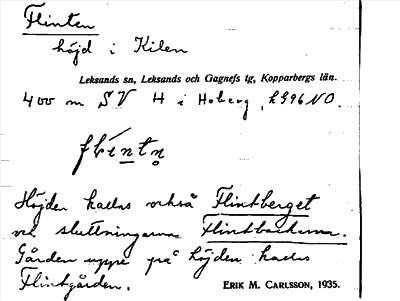 Flinten
höjd i Kilen
Leksands sn, Leksands och Gagnefs tg, Kopparbergs län.
400 m SV H i Hoberg, k 996 NO.
flin̥tn̥
Höjden kallas också Flintberget
och sluttningarna Flintbackarna.
Gården uppe på höjden kallas
Flintgården.
ERIK M. CARLSSON, 1935.